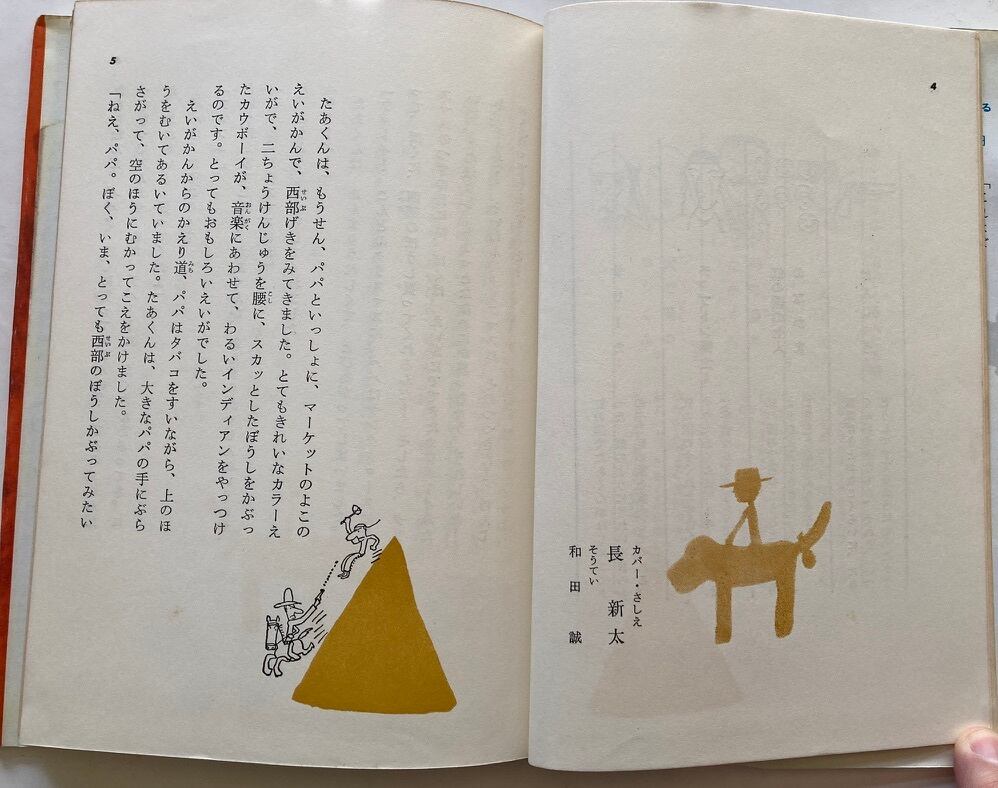 4
カバー・さしえ
長 新太
そうてい
和田 誠
5
たあくんは、もうせん、パパといっしょに、マーケットのよこの
えいがかんで、西部げきをみてきました。とてもきれいなカラーえ
いがで、二ちょうけんじゅうを腰に、スカッとしたぼうしをかぶっ
たカウボーイが、音楽にあわせて、わるいインディアンをやっつけ
るのです。とってもおもしろいえいがでした。
えいがかんからのかえり道、パパはタバコをすいながら、上のほ
うをむいてあるいていました。たあくんは、大きなパパの手にぶら
さがって、空のほうにむかってこえをかけました。
「ねえ、パパ。ぼく、いま、とっても西部のぼうしかぶってみたい